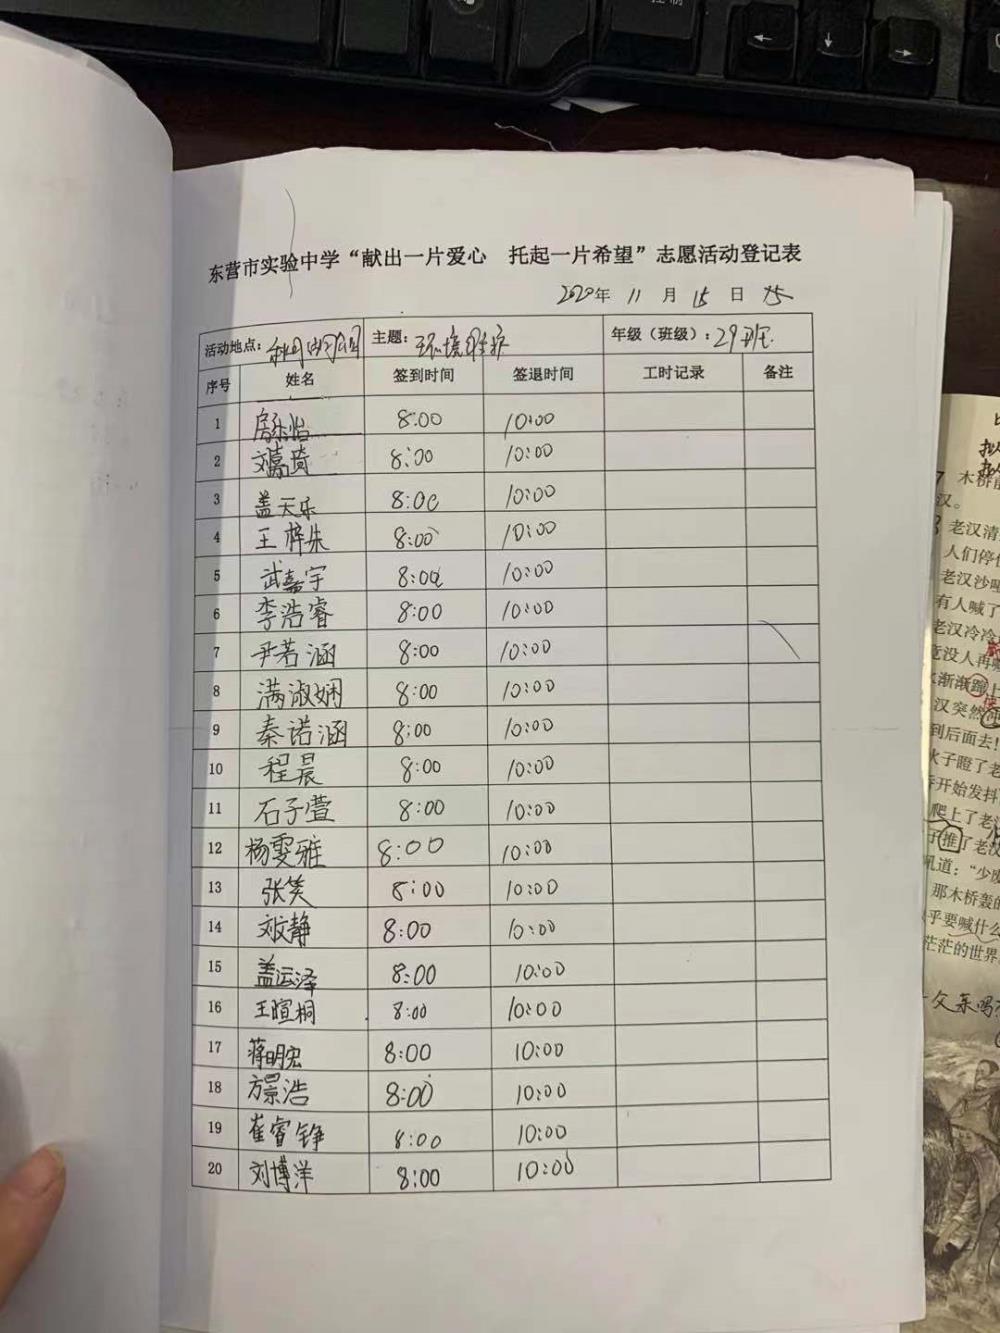 控制
←
↓
→
东营市实验中学“献出一片爱心 托起一片希望”志愿活动登记表
2020年 11 月 15 日
活动地点： 主题：环境维护 年级（班级）：29班
序号 姓名 签到时间 签退时间 工时记录 备注
1 房乐怡 8:00 10:00
2 刘嘉琦 8:00 10:00
3 盖天乐 8:00 10:00
4 王梓朱 8:00 10:00
5 武嘉宇 8:00 10:00
6 李浩睿 8:00 10:00
7 尹若涵 8:00 10:00
8 满淑娴 8:00 10:00
9 秦诺涵 8:00 10:00
10 程晨 8:00 10:00
11 石子萱 8:00 10:00
12 杨雯雅 8:00 10:00
13 张笑 8:00 10:00
14 刘文静 8:00 10:00
15 盖运泽 8:00 10:00
16 王暄桐 8:00 10:00
17 蒋明宏 8:00 10:00
18 方景浩 8:00 10:00
19 崔睿铮 8:00 10:00
20 刘博洋 8:00 10:00
7 木桥前
汉。
老汉清
人们停
老汉沙哑
有人喊了
老汉冷冷
竟没人再喊
渐渐蹿上
汉突然冲
到后面去！
火子瞪了老
开始发抖
爬上了老
子推了老汉
吼道：“少废
那木桥轰的
乎要喊什么
茫茫的世界
父亲吗？